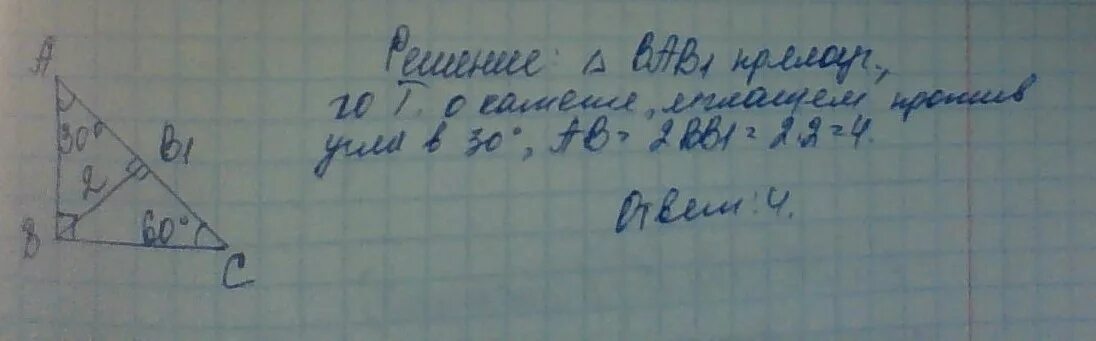 A
30°
B1
2
B
60°
C
Решение: △ BAB1 прямоуг.,
по Т. о катете, лежащем против
угла в 30°, AB = 2BB1 = 2·2 = 4.
Ответ: 4.